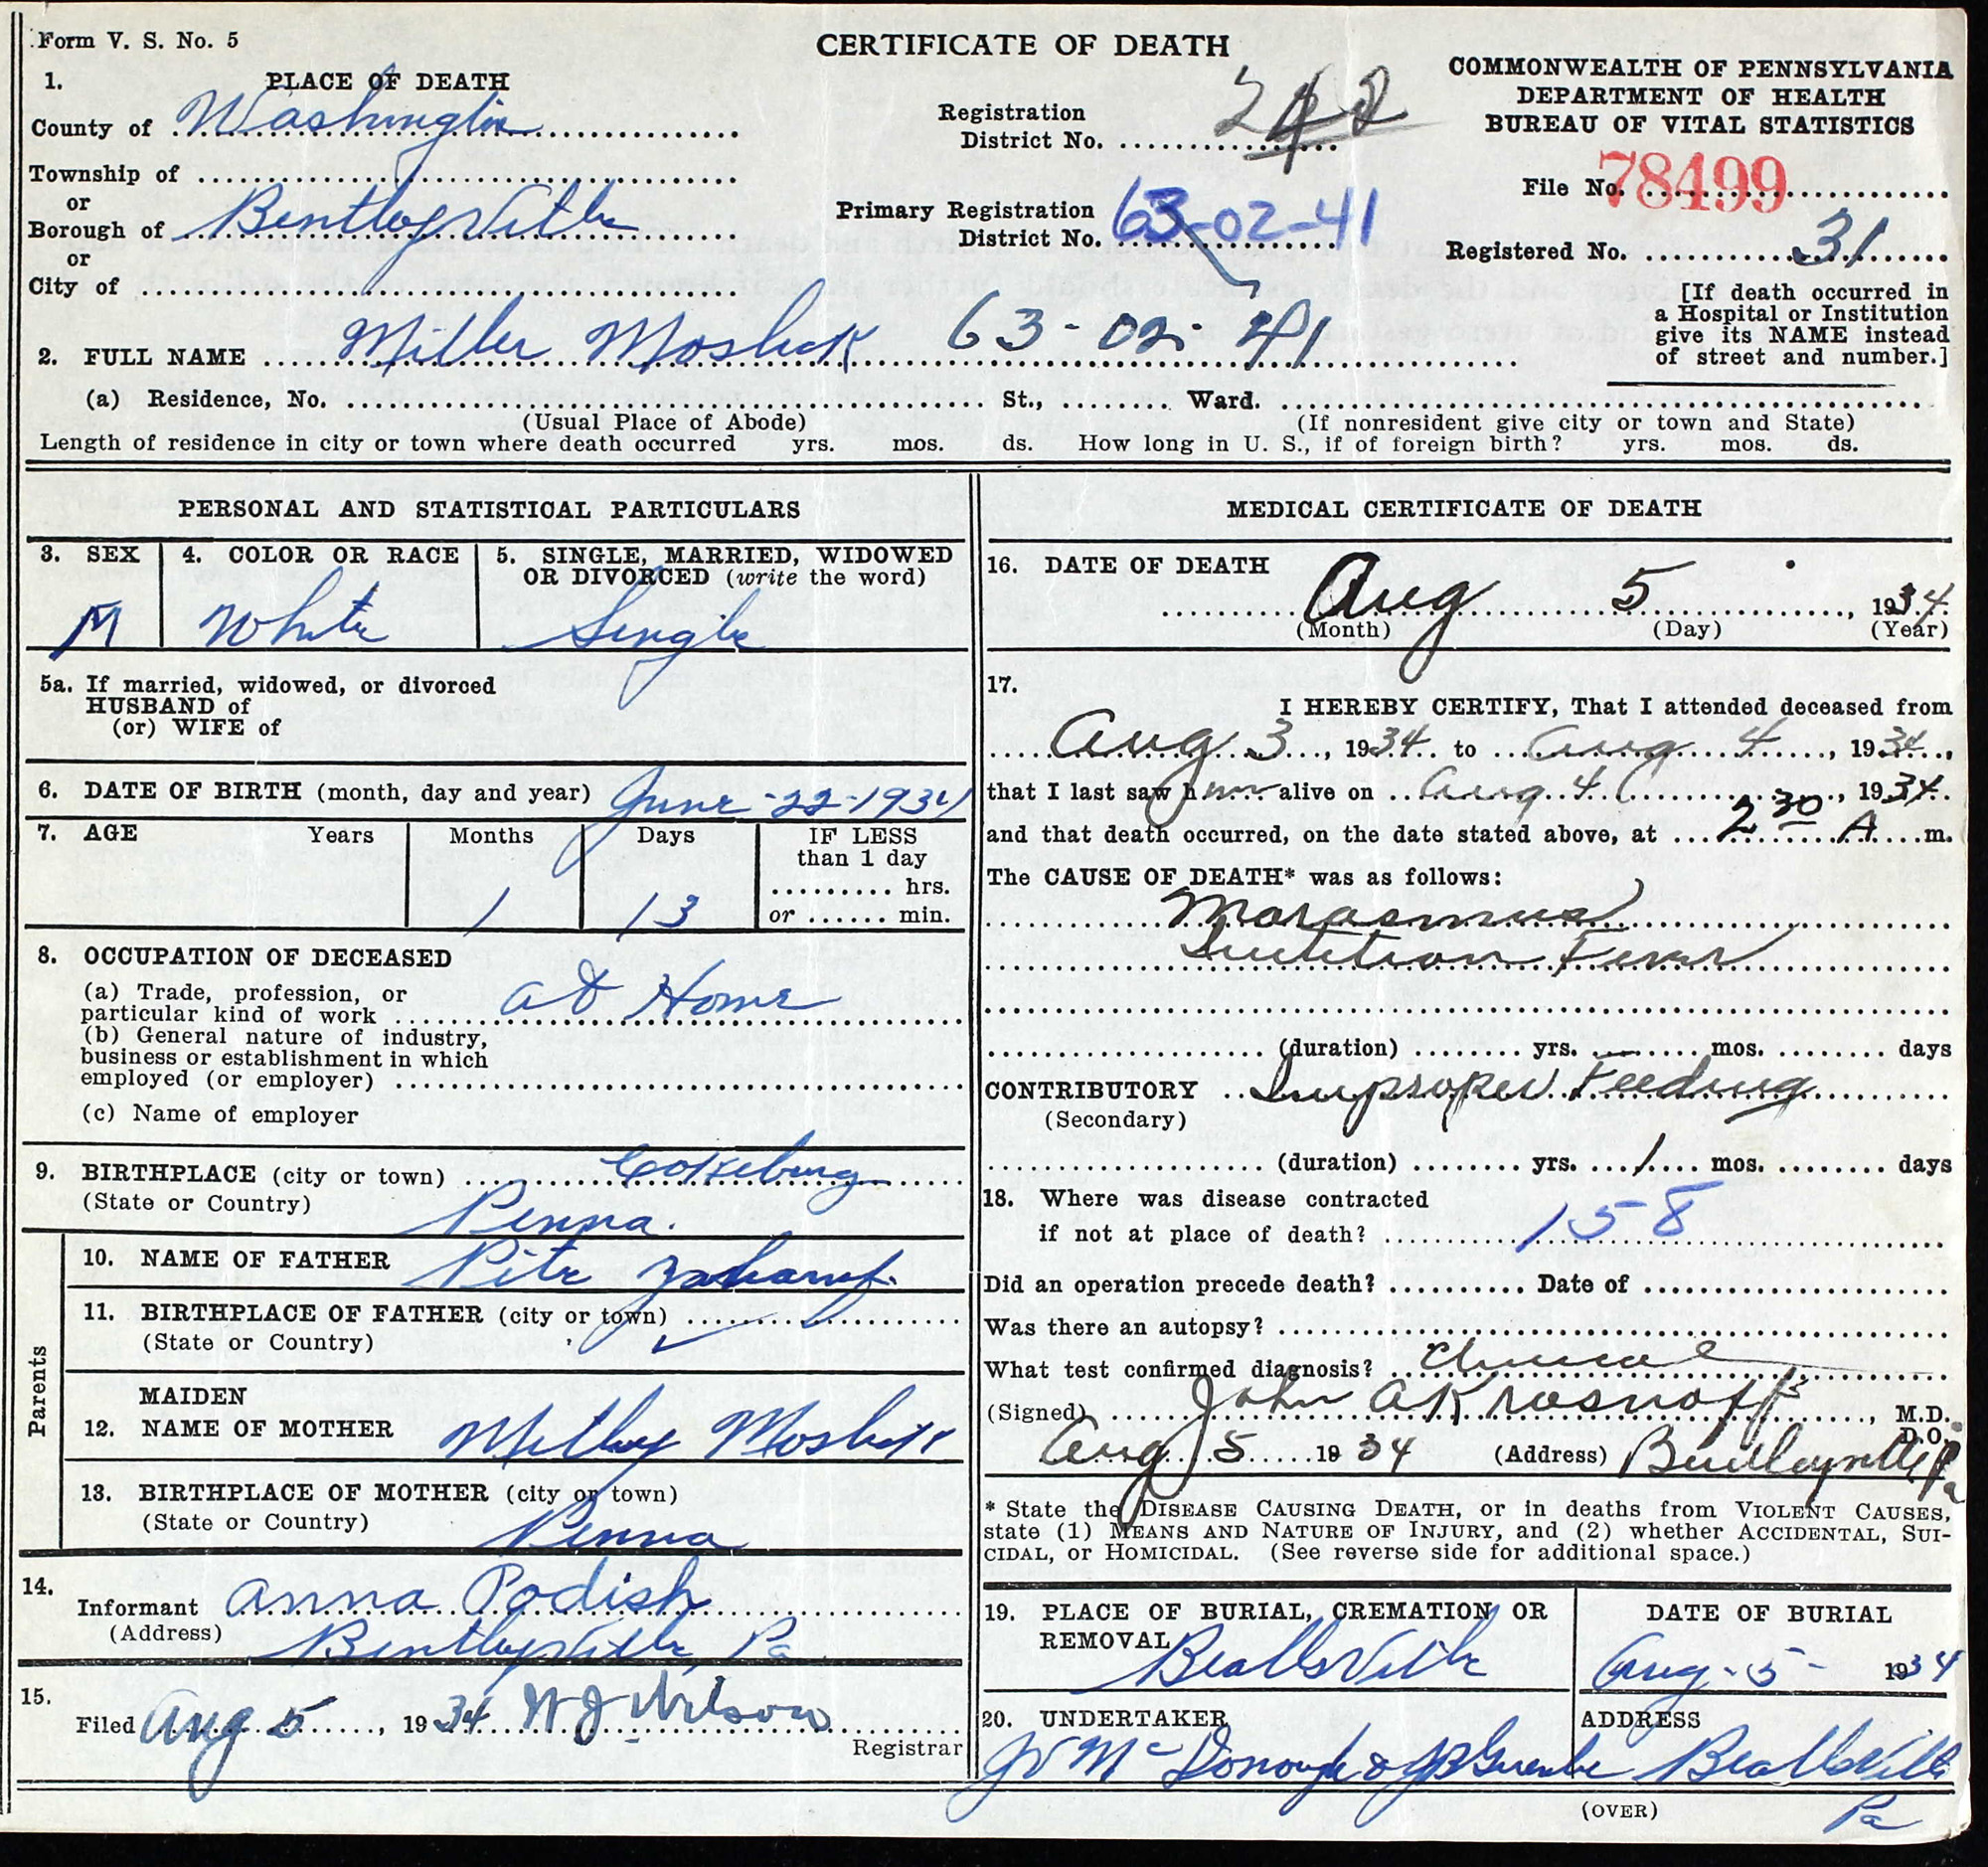 Form V. S. No. 5
CERTIFICATE OF DEATH
COMMONWEALTH OF PENNSYLVANIA
DEPARTMENT OF HEALTH
BUREAU OF VITAL STATISTICS
1. PLACE OF DEATH
County of Washington
Township of
or
Borough of Bentleyville
or
City of
Registration
District No.
Primary Registration
District No. 63-02-41
File No. 78499
Registered No. 31
[If death occurred in
a Hospital or Institution
give its NAME instead
of street and number.]
2. FULL NAME Miller 63-02-41
(a) Residence, No. St., Ward.
(Usual Place of Abode) (If nonresident give city or town and State)
Length of residence in city or town where death occurred yrs. mos. ds. How long in U. S., if of foreign birth? yrs. mos. ds.
PERSONAL AND STATISTICAL PARTICULARS
3. SEX 4. COLOR OR RACE 5. SINGLE, MARRIED, WIDOWED
OR DIVORCED (write the word)
M White Single
5a. If married, widowed, or divorced
HUSBAND of
(or) WIFE of
6. DATE OF BIRTH (month, day and year) June-22-1934
7. AGE Years Months Days IF LESS
than 1 day
hrs.
1 13 or min.
8. OCCUPATION OF DECEASED
(a) Trade, profession, or
particular kind of work at Home
(b) General nature of industry,
business or establishment in which
employed (or employer)
(c) Name of employer
9. BIRTHPLACE (city or town) Cokeburg
(State or Country) Penna.
Parents
10. NAME OF FATHER Pete
11. BIRTHPLACE OF FATHER (city or town)
(State or Country)
MAIDEN
12. NAME OF MOTHER
13. BIRTHPLACE OF MOTHER (city or town)
(State or Country) Penna
14.
Informant Anna Podish
(Address) Bentleyville, Pa
15.
Filed Aug 5, 1934 W J Wilson
Registrar
MEDICAL CERTIFICATE OF DEATH
16. DATE OF DEATH
Aug 5, 1934
(Month) (Day) (Year)
17.
I HEREBY CERTIFY, That I attended deceased from
Aug 3, 1934 to Aug 4, 1934,
that I last saw him alive on Aug 4, 1934.
and that death occurred, on the date stated above, at 2 30 A m.
The CAUSE OF DEATH* was as follows:
Marasmus
Fever
(duration) yrs. mos. days
CONTRIBUTORY Improper Feeding
(Secondary)
(duration) yrs. 1 mos. days
18. Where was disease contracted
if not at place of death? 158
Did an operation precede death? Date of
Was there an autopsy?
What test confirmed diagnosis? Clinical
(Signed) John A Krasnoff, M.D.
D.O.
Aug 5 1934 (Address) Bentleyville Pa
* State the DISEASE CAUSING DEATH, or in deaths from VIOLENT CAUSES,
state (1) MEANS AND NATURE OF INJURY, and (2) whether ACCIDENTAL, SUI-
CIDAL, or HOMICIDAL. (See reverse side for additional space.)
19. PLACE OF BURIAL, CREMATION OR
REMOVAL
Beallsville
DATE OF BURIAL
Aug-5- 1934
20. UNDERTAKER ADDRESS
McDonough & Beallsville
Pa
(OVER)